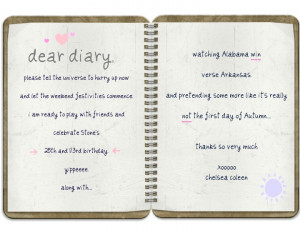 dear diary,
please tell the universe to hurry up now
and let the weekend festivities commence
i am ready to play with friends and
celebrate Stone's
25th and 1/3rd birthday.
yippeeee
along with...
watching Alabama win
verse Arkansas
and pretending some more like it's really
not the first day of Autumn...
thanks so very much
xooooo
chelsea coleen